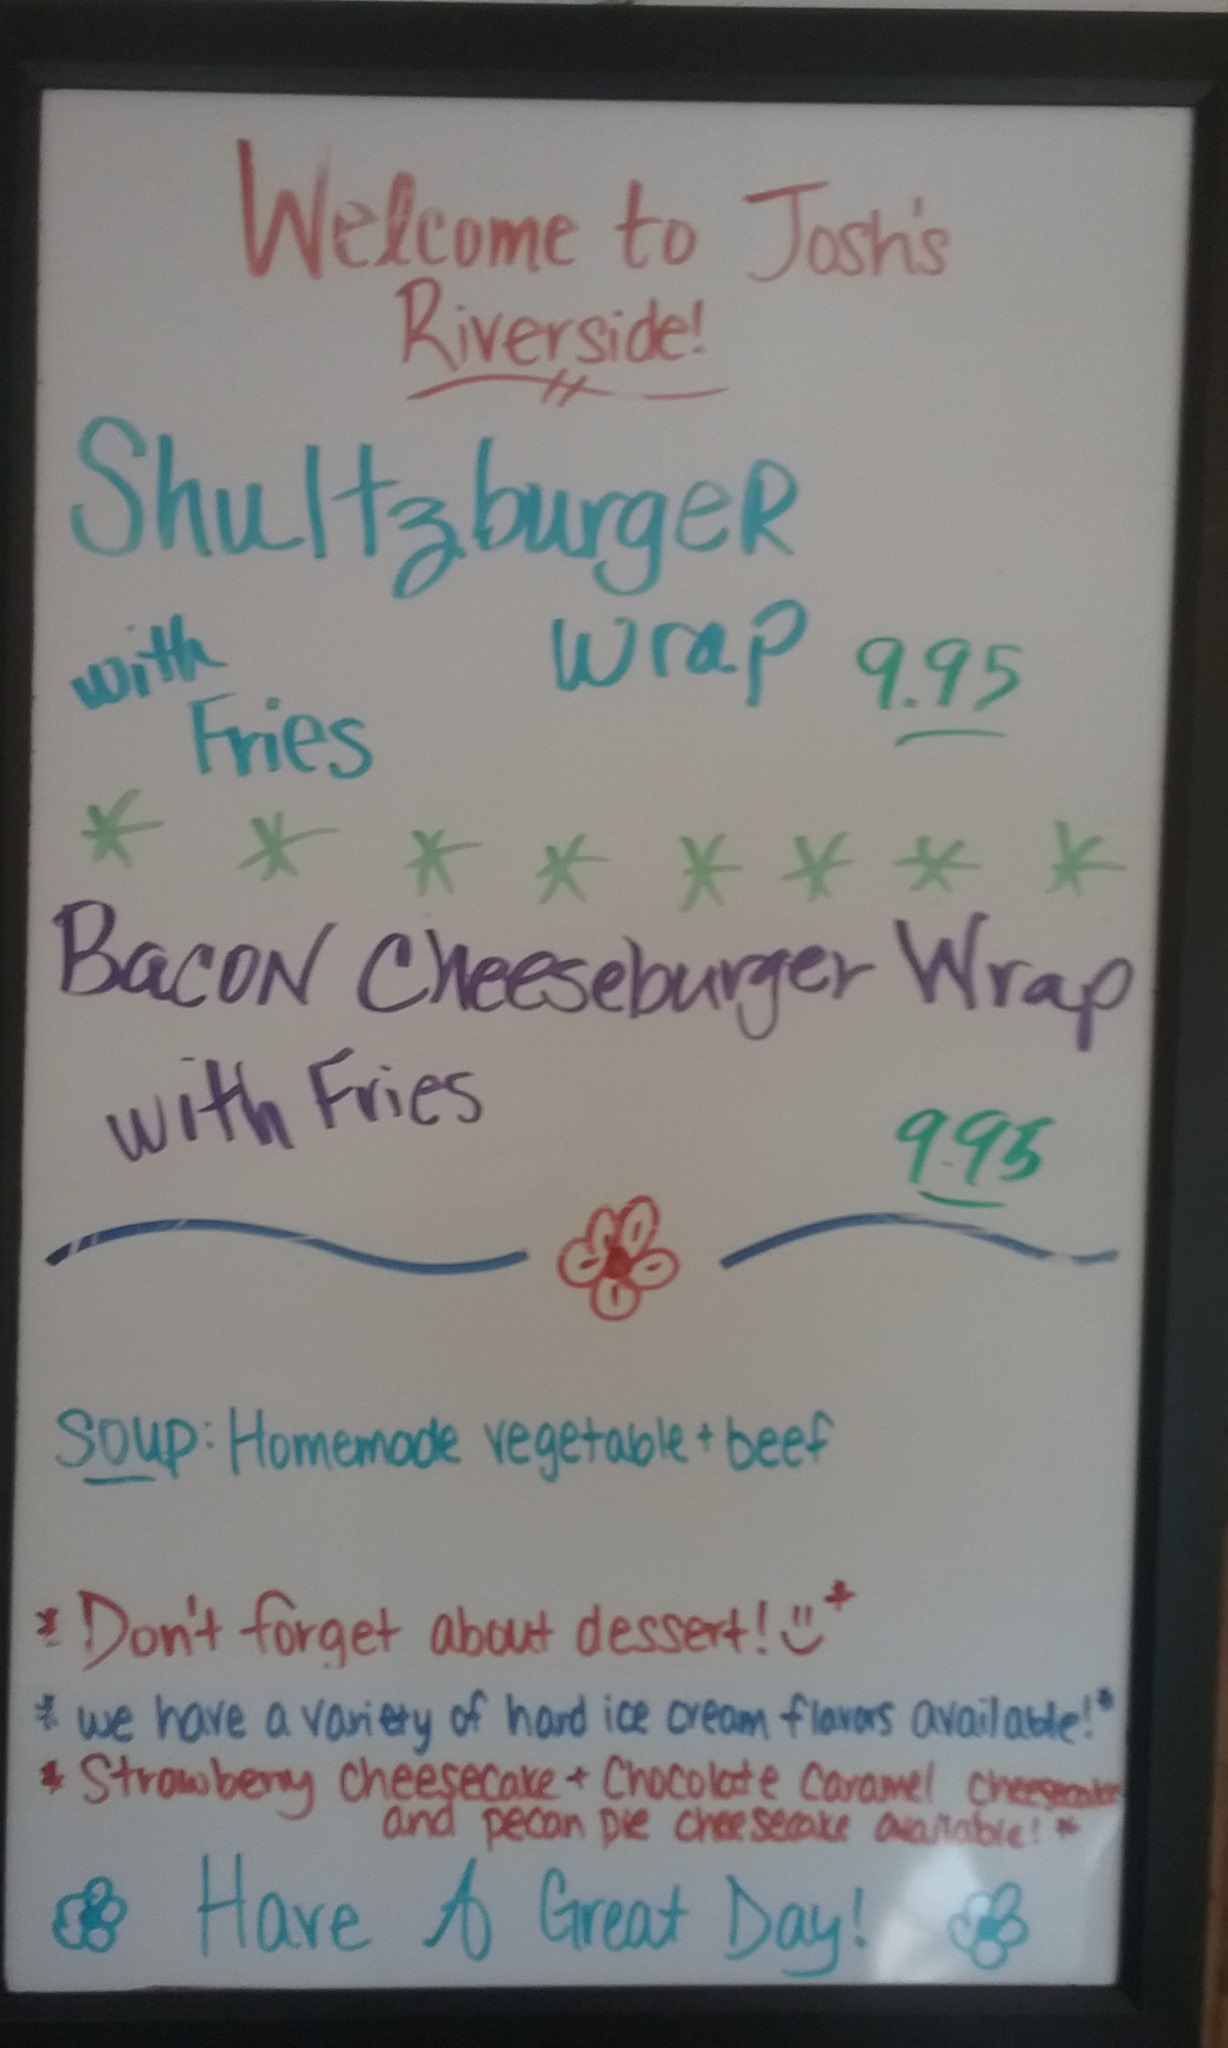 Welcome to Josh's
Riverside!
Shultzburger
Wrap 9.95
with
Fries
* * * * * * * *
Bacon Cheeseburger Wrap
with Fries
9.95
Soup: Homemade vegetable + beef
* Don't forget about dessert! *
* we have a variety of hard ice cream flavors available! *
* Strawberry cheesecake + Chocolate Caramel cheesecake
and pecan pie cheesecake available! *
Have A Great Day!